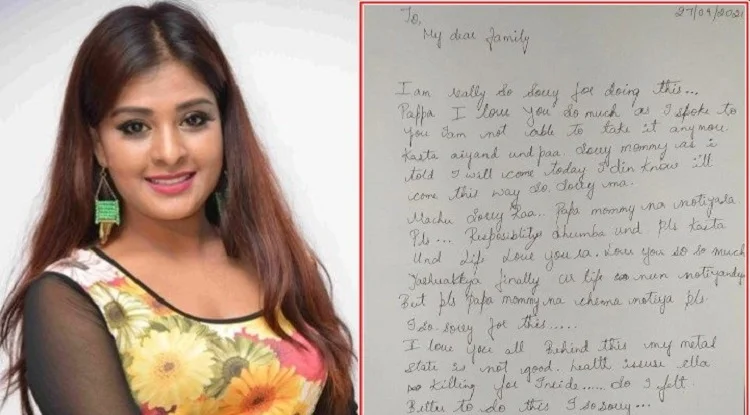 27/09/2021
To,
My dear family
I am really so sorry for doing this...
Pappa I love you so much as I spoke to
you I am not able to take it anymore.
Kasta aiyand und paa. Sorry mommy as i
told I will come today I din know i'll
come this way so. Sorry ma.
Machu Sorry Raa.. Papa mommy na notiyala.
Pls... dhumba und pls Kasta
Und Life Love you ra. Love you so so much
finally ur life nun notiyandu
But pls Papa mommy na chenna notiya pls.
I so sorry for this.....
I love you all Behind this my metal
state is not good. health issuse ella
Killing for Inside..... So I felt
Better to do this I so sorry...